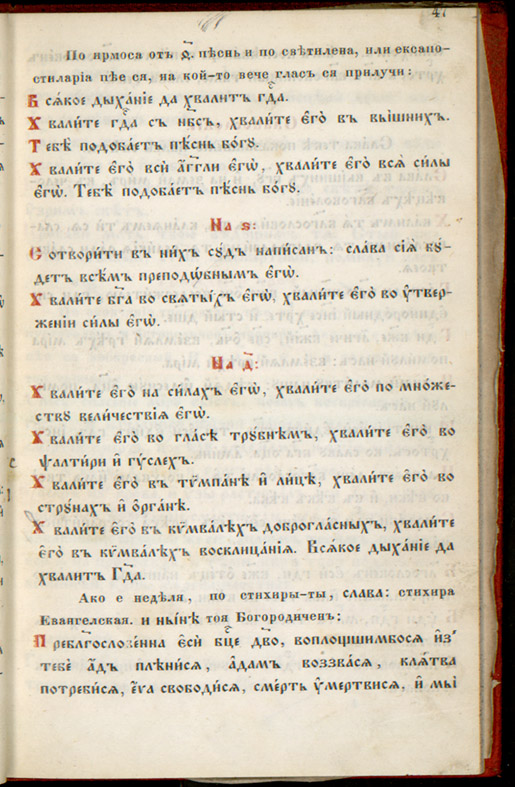 47
По ирмоса отъ ѳ҃. пѣснь и по свѣтилена, или ексапо-
стиларіа пѣе ся, на кой-то вече гласъ ся прилучи:
Всѧ́кое дыха́нїе да хвалитъ гдⷭ҇а.
Хвали́те гдⷭ҇а съ нб҃съ, хвали́те є҆го̀ въ вы́шнихъ.
Тебѣ̀ подоба́етъ пѣ́снь бг҃ꙋ.
Хвали́те є҆го̀ всѝ а҆́гг҃ли є҆гѡ̀, хвали́те є҆го̀ всѧ̑ си̑лы
є҆гѡ̀. Тебѣ̀ подоба́етъ пѣ́снь бо́гꙋ.
На ѕ҃:
Сотвори́ти въ ни́хъ сꙋ́дъ напи́санъ: сла́ва сїѧ̀ бꙋ́-
детъ всѣ̑мъ преподѡ́бнымъ є҆гѡ̀.
Хвали́те бг҃а во свѧты́хъ є҆гѡ̀, хвали́те є҆го̀ во ᲂу҆твер-
же́нїи си́лы є҆гѡ̀.
На д҃:
Хвали́те є҆го̀ на си́лахъ є҆гѡ̀, хвали́те є҆го̀ по мно́же-
ствꙋ вели́чествїѧ є҆гѡ̀.
Хвали́те є҆го̀ во гла́сѣ трꙋ́бнѣмъ, хвали́те є҆го̀ во
ѱалти́ри и҆ гꙋ́слехъ.
Хвали́те є҆го̀ въ тѷмпа́нѣ и҆ ли́цѣ, хвали́те є҆го̀ во
стрꙋ́нахъ и҆ ѻ҆рга́нѣ.
Хвали́те є҆го̀ въ кѷмва́лѣхъ доброгла́сныхъ, хвали́те
є҆го̀ въ кѷмва́лѣхъ восклица́нїѧ. Всѧ́кое дыха́нїе да
хвалитъ Гдⷭ҇а.
Ако е недѣля, по стихиры-ты, слава: стихира
Евангелская. и ны́нѣ тоя Богородиченъ:
Преблг҃ослове́нна є҆сѝ бц҃е дв҃о, воплощшимбосѧ и҆з̾
тебє̀ а҆́дъ плѣни́сѧ, а҆да́мъ воззва́сѧ, клѧ́тва
потреби́сѧ, є҆́ѵа свободи́сѧ, сме́рть ᲂу҆мертви́сѧ, и҆ мы̀